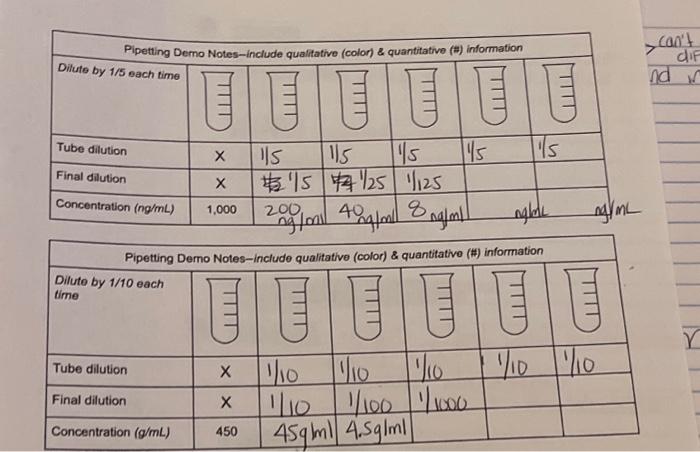 Pipetting Demo Notes—include qualitative (color) & quantitative (#) information
Dilute by 1/5 each time
Tube dilution X 1/5 1/5 1/5 1/5 1/5
Final dilution X 1/5 1/25 1/125
Concentration (ng/mL) 1,000 200 ng/ml 40 ng/ml 8 ng/ml ng/mL ng/mL
Pipetting Demo Notes—include qualitative (color) & quantitative (#) information
Dilute by 1/10 each
time
Tube dilution X 1/10 1/10 1/10 1/10 1/10
Final dilution X 1/10 1/100 1/1000
Concentration (g/mL) 450 45g/ml 4.5g/ml
can't